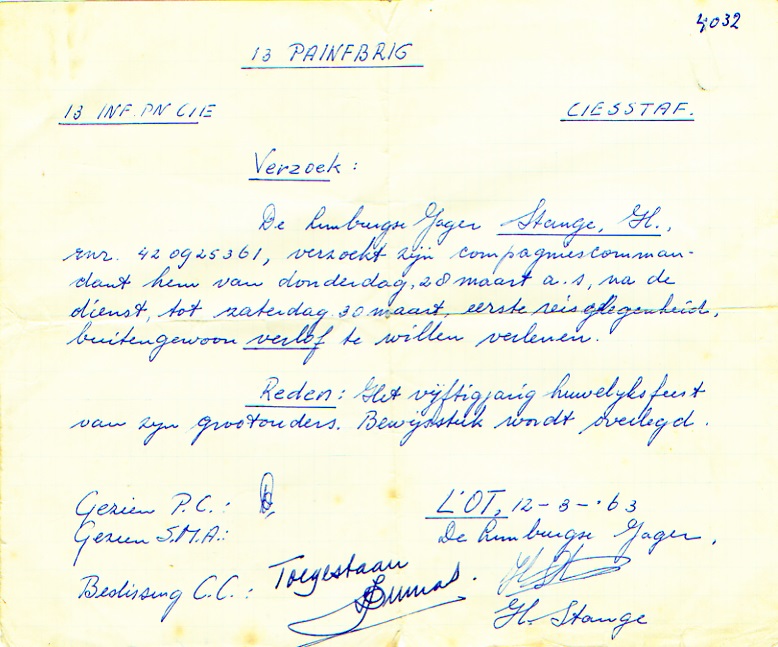 4032
13 PAINFBRIG
13 INF. PN CIE CIESSTAF.
Verzoek:
De Limburgse Jager Stange, H.,
rnr. 420925361, verzoekt zijn compagniescomman-
dant hem van donderdag, 28 maart a.s, na de
dienst, tot zaterdag 30 maart, eerste reisgelegenheid,
buitengewoon verlof te willen verlenen.
Reden: Het vijftigjarig huwelijksfeest
van zijn grootouders. Bewijsstuk wordt overlegd.
Gezien P.C.: L'OT, 12-3-'63
Gezien S.M.A: De Limburgse Jager,
Beslissing C.C.: Toegestaan
H. Stange